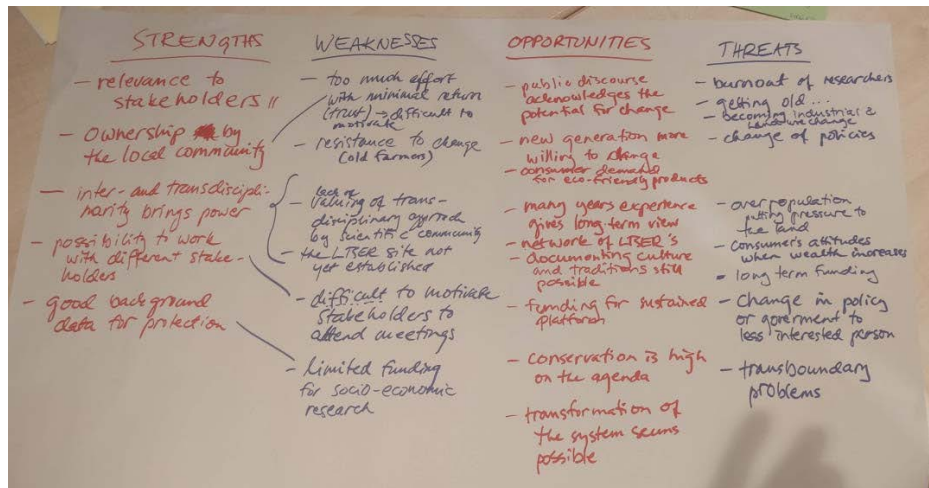 STRENGTHS
- relevance to
stakeholders !!
- ownership by
the local community
- inter- and transdiscipli-
narity brings power
- possibility to work
with different stake-
holders
- good background
data for protection
WEAKNESSES
- too much effort
with minimal return
(trust) → difficult to
motivate
- resistance to change
(old farmers)
lack of
- valuing of trans-
disciplinary approach
by scientific community
- the LTSER site not
yet established
- difficult to motivate
stakeholders to
attend meetings
- limited funding
for socio-economic
research
OPPORTUNITIES
- public discourse
acknowledges the
potential for change
- new generation more
willing to change
- consumer demand
for eco-friendly products
- many years experience
gives long-term view
- network of LTSER's
- documenting culture
and traditions still
possible
- funding for sustained
platform
- conservation is high
on the agenda
- transformation of
the system seems
possible
THREATS
- burnout of researchers
- getting old...
- becoming industrial &
change
- change of policies
- overpopulation
putting pressure to
the land
- consumer's attitudes
when wealth increases
- long term funding
- change in policy
or goverment to
less interested person
- transboundary
problems